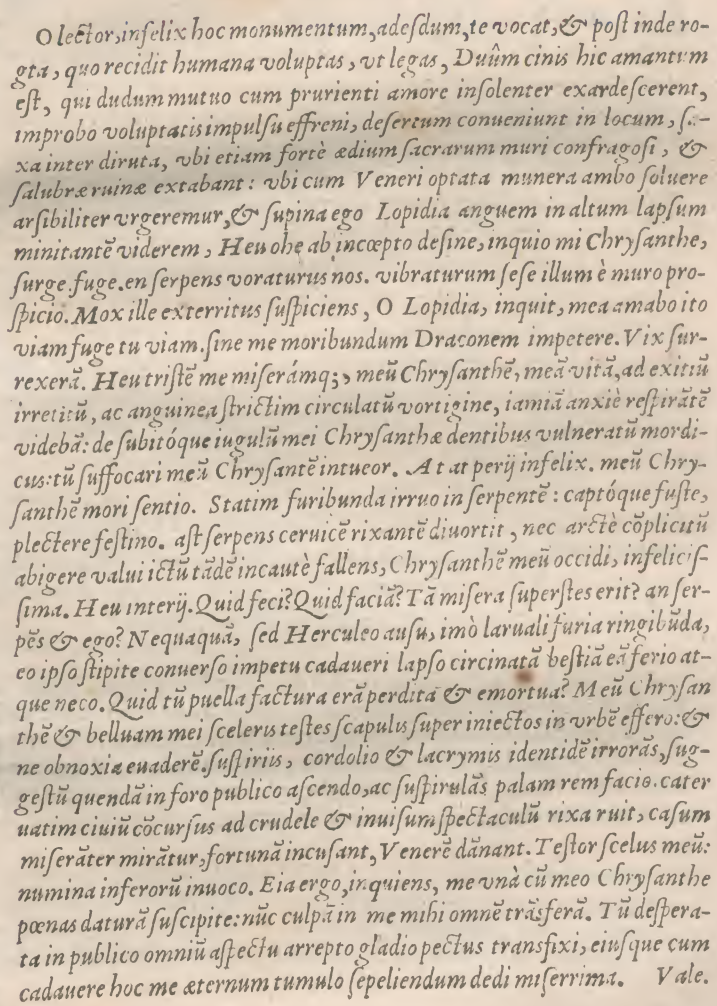 O lector, infelix hoc monumentum, adesdum, te vocat, & post inde ro-
gta, quo recidit humana voluptas, vt legas, Duûm cinis hic amantum
est, qui dudum mutuo cum prurienti amore insolenter exardescerent,
improbo voluptatis impulsu effreni, desertum conueniunt in locum, s.-
xa inter diruta, vbi etiam fortè ædium sacrarum muri confragosi, &
salubræ ruinæ extabant: vbi cum Veneri optata munera ambo soluere
arsibiliter vrgeremur, & supina ego Lopidia anguem in altum lapsum
minitantē viderem, Heu ohe ab incœpto desine, inquio mi Chrysanthe,
surge.fuge.en serpens voraturus nos. vibraturum sese illum è muro pro-
spicio. Mox ille exterritus suspiciens, O Lopidia, inquit, mea amabo ito
viam fuge tu viam. sine me moribundum Draconem impetere. Vix sur-
rexerā. Heu tristē me miserámq;, meū Chrysanthē, meā vitā, ad exitiū
irretitū, ac anguinea strictim circulatū vortigine, iamiā anxiè respirātē
videbā: de subitóque iugulū mei Chrysanthæ dentibus vulneratū mordi-
cus: tū suffocari meū Chrysantē intueor. At at perij infelix. meū Chry-
santhē mori sentio. Statim furibunda irruo in serpentē: captóque fuste,
plectere festino. ast serpens ceruicē rixantē diuortit, nec arctè cōplicitū
abigere valui ictū tādē incautè fallens, Chrysanthē meū occidi, infelicis-
sima. Heu interij. Quid feci? Quid faciā? Tā misera superstes erit? an ser-
pēs & ego? Nequaquā, sed Herculeo ausu, imò laruali furia ringibūda,
eo ipso stipite conuerso impetu cadaueri lapso circinatā bestiā eā ferio at-
que neco. Quid tū puella factura erā perdita & emortua? Meū Chrysan
thē & belluam mei sceleris testes scapulis super iniectos in vrbē effero: &
ne obnoxia euaderē. suspiriis, cordolio & lacrymis identidē irrorās, sug-
gestū quendā in foro publico ascendo, ac suspirulās palam rem facio. cater
uatim ciuiū cōcursus ad crudele & inuisum spectaculū rixa ruit, casum
miserāter mirātur, fortunā incusant, Venerē dānant. Testor scelus meū:
numina inferorū inuoco. Eia ergo, inquiens, me vnà cū meo Chrysanthe
pœnas daturā suscipite: nūc culpā in me mihi omnē trāsferā. Tū despera-
ta in publico omniū aspectu arrepto gladio pectus transfixi, eiusque cum
cadauere hoc me æternum tumulo sepeliendum dedi miserrima. Vale.